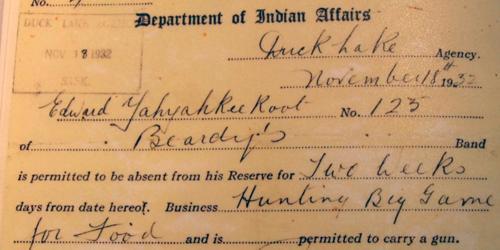 No.
Department of Indian Affairs
DUCK LAKE AGENCY
NOV 18 1932
SASK.
Duck Lake Agency.
November 18th 1932
Edward Yahyahkeekoot No. 123
of Beardy's Band
is permitted to be absent from his Reserve for Two Weeks
days from date hereof. Business Hunting Big Game
for Food and is permitted to carry a gun.